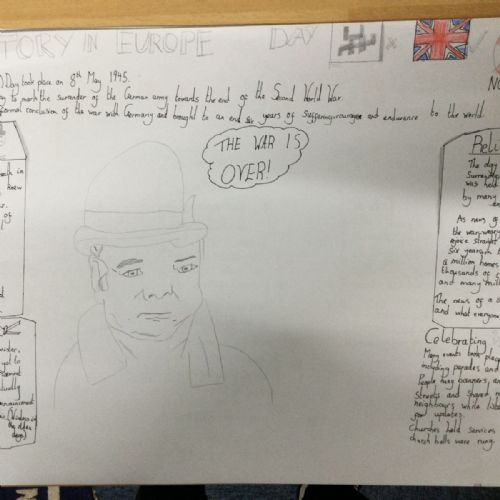 TORY IN EUROPE DAY
Day took place on 8th May 1945.
to mark the surrender of the German army towards the end of the Second World War.
formal conclusion of the war with Germany and brought to an end six years of suffering courage and endurance to the world.
THE WAR IS
OVER!
NO
k in
knew
of
d
nister,
yal to
nouncement
(Windows in
the olden
days)
Reli
The day
surre
was hel
by many
As news of
the war-weary
rejoice straight
six years
a million homes
thousands of
and many mill
The news of a s
and what everyone
Celebrating
Many events took place
including parades and
People hung banners, and
Streets and shared
neighbours while list
for updates.
Churches held services
church bells were rung.